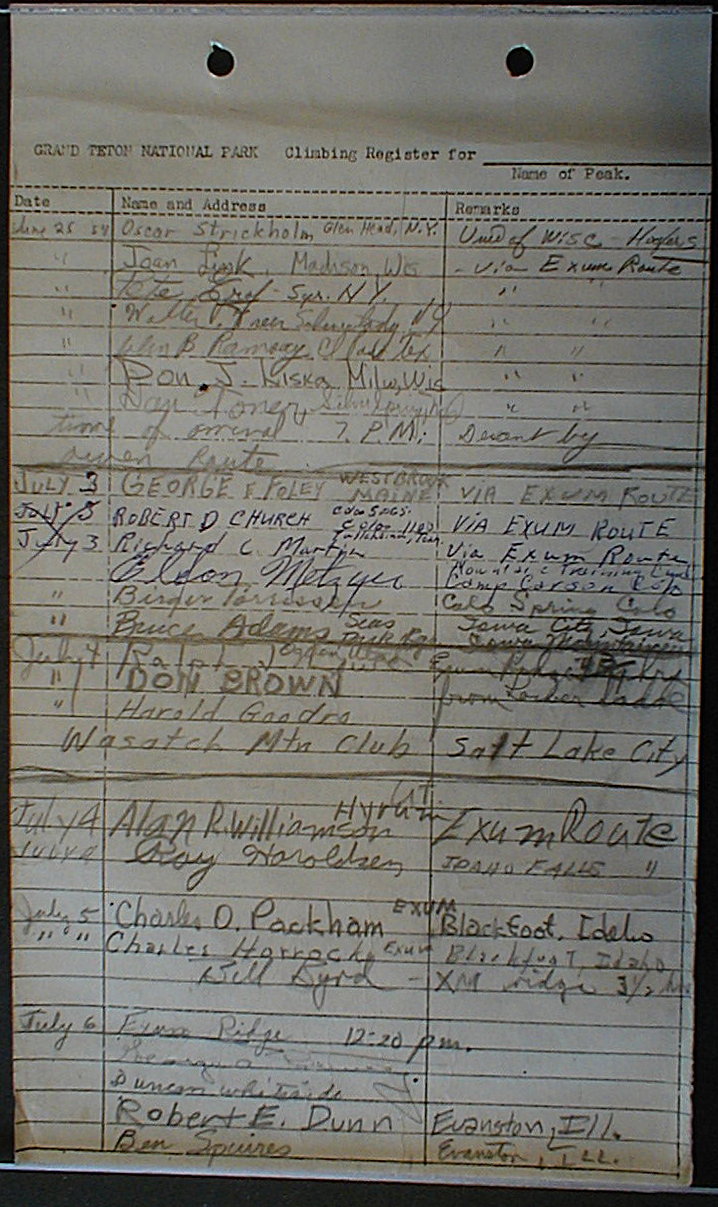 GRAND TETON NATIONAL PARK Climbing Register for
Name of Peak.
Date Name and Address Remarks
June 28 54 Oscar Strickholm Glen Head, N.Y. Univ of Wisc - Hoofers
" Joan Link, Madison, Wis - via Exum Route
" Pete Syr. N.Y. " "
" N.Y. " "
" Glen B. Ramsey, Tex " "
" Don J. Kiska Milw, Wis " "
" Dan " "
time of arrival 7. P.M. Descent by
Owen Route
JULY 3 GEORGE F FOLEY WESTBROOK MAINE VIA EXUM ROUTE
July 3 ROBERT D CHURCH VIA EXUM ROUTE
July 3 Richard C. Martin Via Exum Route
Eldon Metzger Camp Carson Colo
" Birger Colo Spring Colo
" Bruce Adams Iowa City, Iowa
Iowa Mountaineers
July 4 Ralph Ogden
" DON BROWN from
" Harold Goodro
Wasatch Mtn Club Salt Lake City
July 4 Alan R. Williamson Hyrum UT. Exum Route
July 4 Ray Haroldsen IDAHO FALLS "
July 5 Charles O. Packham EXUM Blackfoot, Idaho
" " Charles Horrocks Exum Blackfoot, Idaho
Bill Byrd - XM ridge 3½ hrs
July 6 Exum Ridge 12:20 p.m.
George
Duncan Whiteside
Robert E. Dunn Evanston, Ill.
Ben Squires Evanston, Ill.